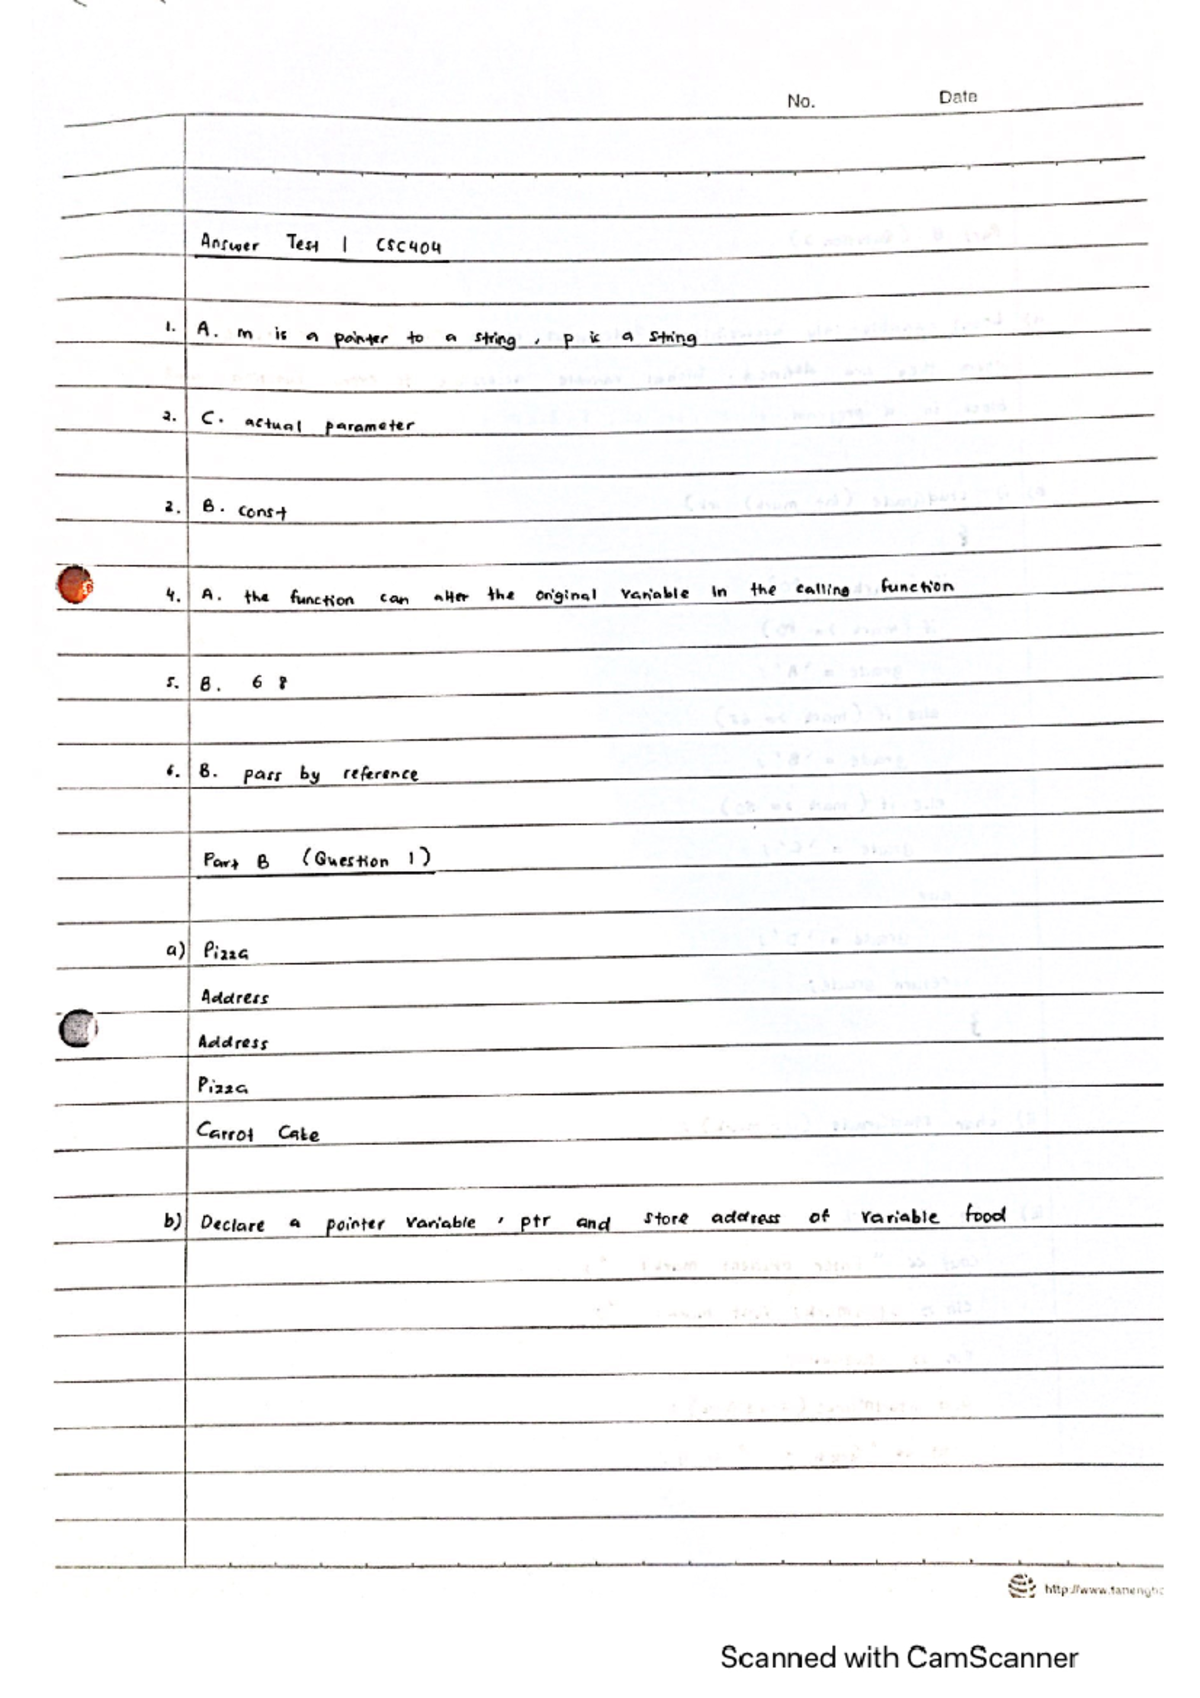 No. Date
Answer Test 1 CSC404
1. A. m is a pointer to a string, p is a string
2. C. actual parameter
3. B. const
4. A. the function can alter the original variable in the calling function
5. B. 6 8
6. B. pass by reference
Part B (Question 1)
a) Pizza
Address
Address
Pizza
Carrot Cake
b) Declare a pointer variable, ptr and store address of variable food
Scanned with CamScanner